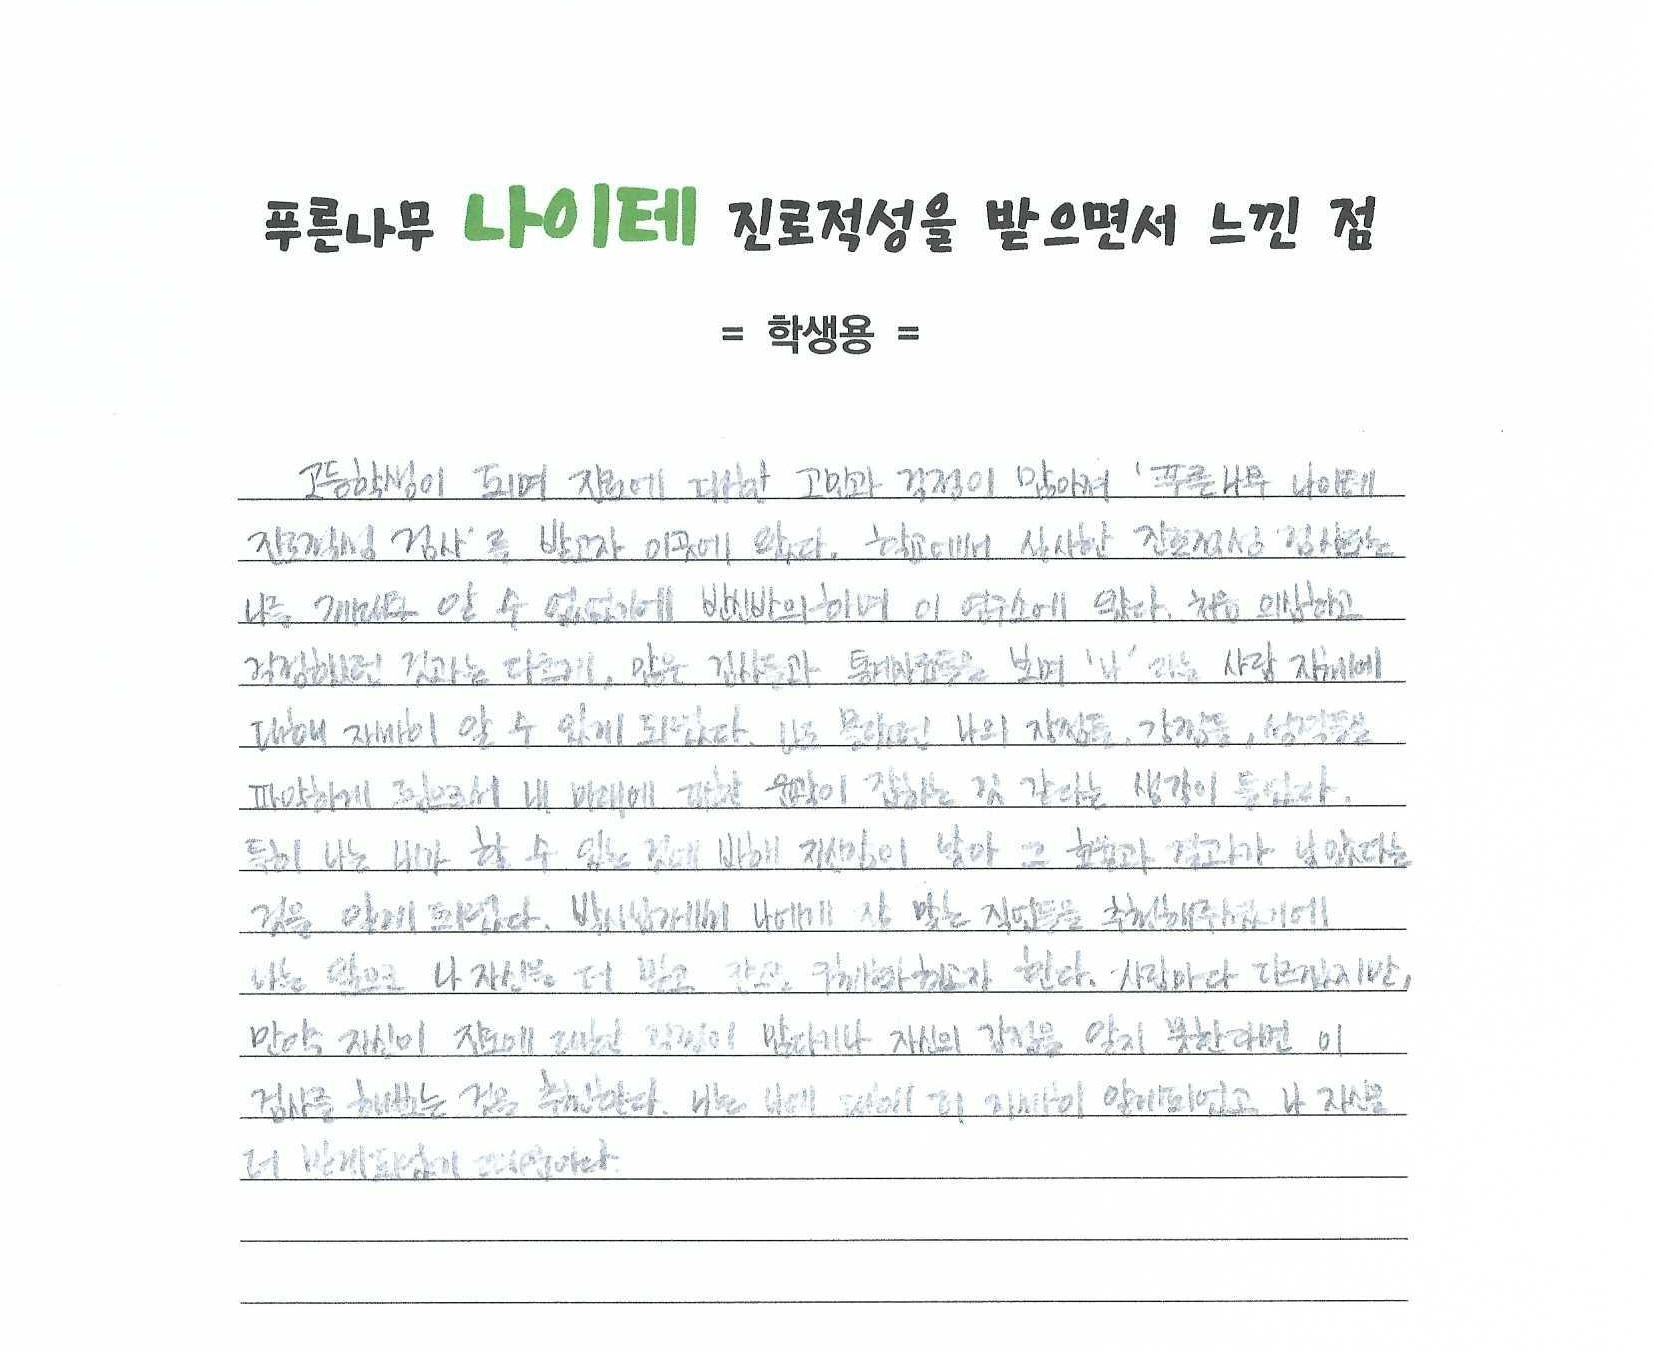 푸른나무 나이테 진로적성을 받으면서 느낀 점
= 학생용 =
고등학생이 되며 진로에 대한 고민과 걱정이 많아져 '푸른나무 나이테
진로적성 검사'를 받고자 이곳에 왔다. 학교에서 실시한 진로적성 검사로는
나를 제대로 알 수 없었기에 반신반의하며 이 연구소에 왔다. 처음 의심하고
걱정했던 것과는 다르게, 많은 검사들과 통계자료들을 보며 '나'라는 사람 자체에
대해 자세히 알 수 있게 되었다. 나도 몰랐던 나의 장점들, 강점들, 성격들을
파악하게 됨으로서 내 미래에 대한 윤곽이 잡히는 것 같다는 생각이 들었다.
특히 나는 내가 할 수 있는 것에 비해 자신감이 낮아 그 효율과 결과가 낮았다는
것을 알게 되었다. 박사님께서 나에게 잘 맞는 직업들을 추천해주셨기에
나는 앞으로 나 자신을 더 믿고 한다. 사람마다 다르겠지만,
만약 자신이 진로에 대한 걱정이 많다거나 자신의 강점을 알지 못한다면 이
검사를 해보는 것을 추천한다. 나는 나에 대해 더 자세히 알게되었고 나 자신을
더 믿게되었기 때문이다.